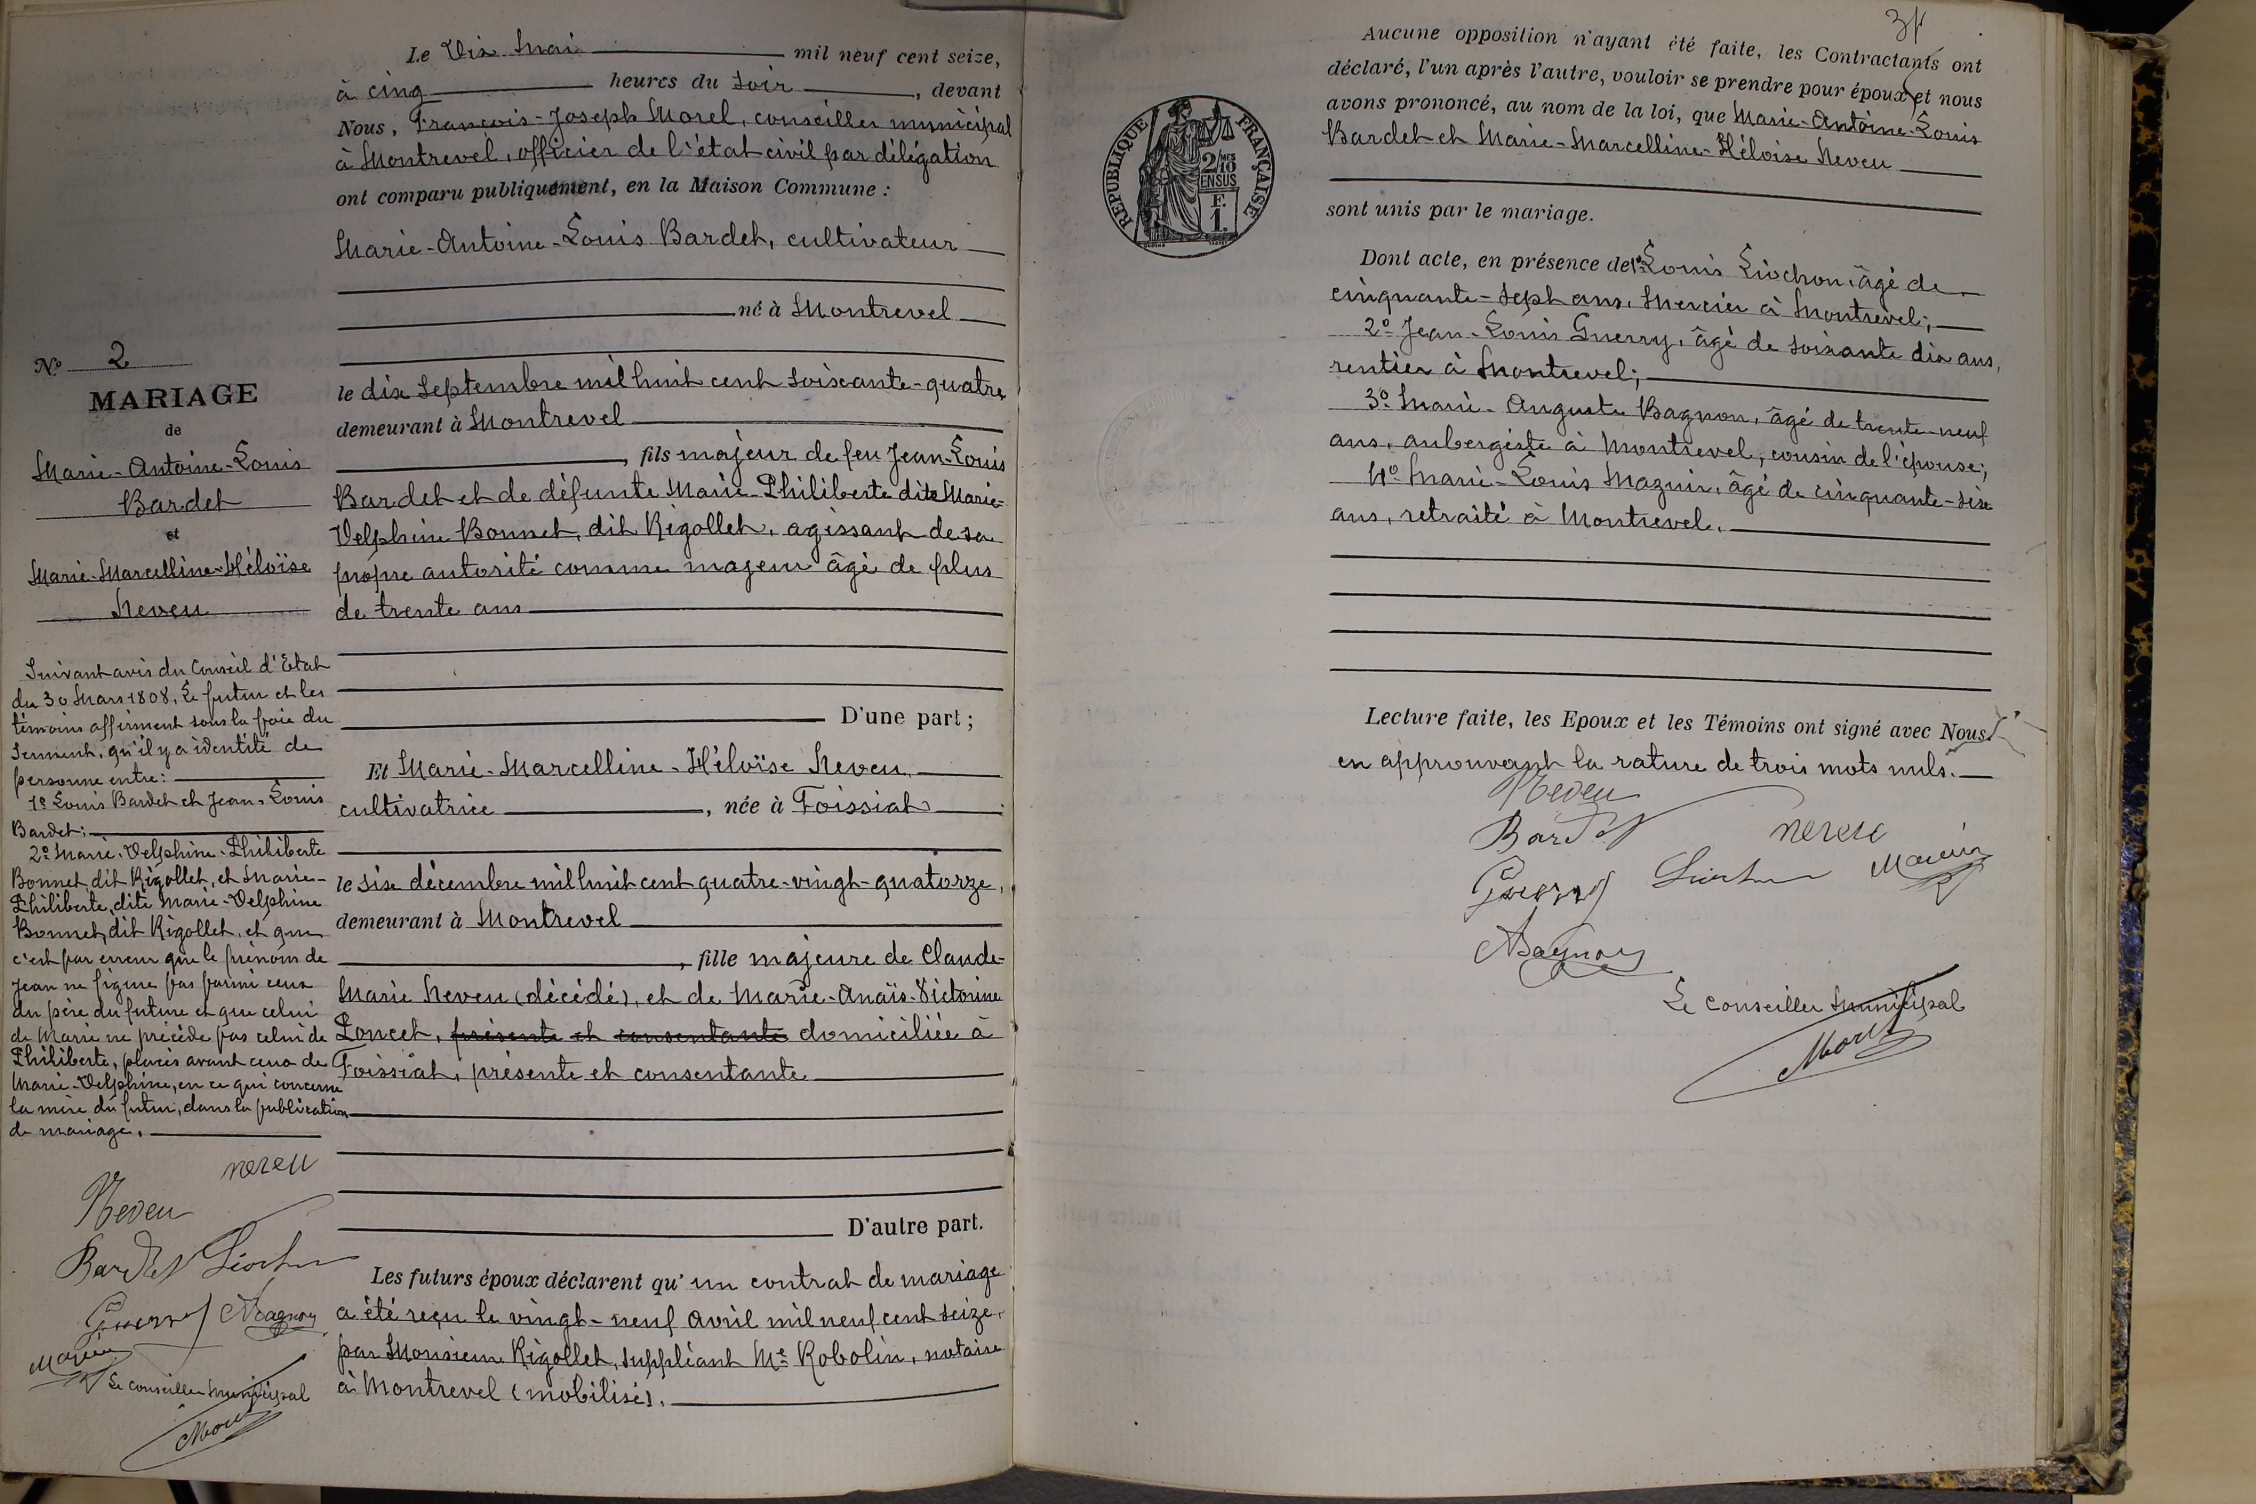 Le Dix Mai mil neuf cent seize,
à cinq heures du soir, devant
Nous, François-Joseph Morel, conseiller municipal
à Montrevel, officier de l'état civil par délégation
ont comparu publiquement, en la Maison Commune :
Marie-Antoine-Louis Bardet, cultivateur
né à Montrevel
le dix septembre mil huit cent soixante-quatre
demeurant à Montrevel
, fils majeur de feu Jean-Louis
Bardet et de défunte Marie-Philiberte dite Marie-
Delphine Bonnet, dit Rigollet, agissant de sa
propre autorité comme majeur âgé de plus
de trente ans
D'une part ;
Et Marie-Marcelline-Héloïse Neveu,
cultivatrice, née à Foissiat
le six décembre mil huit cent quatre-vingt-quatorze,
demeurant à Montrevel
, fille majeure de Claude-
Marie Neveu (décédé), et de Marie-Anaïs-Victorine
Poncet, présente et consentante domiciliée à
Foissiat, présente et consentante
D'autre part.
Les futurs époux déclarent qu'un contrat de mariage
a été reçu le vingt-neuf avril mil neuf cent seize,
par Monsieur Rigollet, suppléant Me Robolin, notaire
à Montrevel (mobilisé).
No 2
MARIAGE
de
Marie-Antoine-Louis
Bardet
et
Marie-Marcelline-Héloïse
Neveu
Suivant avis du Conseil d'Etat
du 30 Mars 1808, Le futur et les
témoins affirment sous la foie du
serment, qu'il y a identité de
personne entre :
1o Louis Bardet et Jean-Louis
Bardet ;
2o Marie-Delphine-Philiberte
Bonnet dit Rigollet, et Marie-
Philiberte, dite Marie-Delphine
Bonnet, dit Rigollet, et que
c'est par erreur que le prénom de
Jean ne figure pas parmi ceux
du père du future et que celui
de Marie ne précède pas celui de
Philiberte, placés avant ceux de
Marie-Delphine, en ce qui concerne
la mère du futur, dans la publication
de mariage.
neveu
Neveu
Bardet Liochon
Guerry ABagnon
Mazuir
Le conseiller municipal
Morel
Aucune opposition n'ayant été faite, les Contractants ont
déclaré, l'un après l'autre, vouloir se prendre pour époux et nous
avons prononcé, au nom de la loi, que Marie-Antoine-Louis
Bardet et Marie-Marcelline-Héloïse Neveu
sont unis par le mariage.
RÉPUBLIQUE FRANÇAISE
2/10
MES
EN SUS
F.
1.
Dont acte, en présence de 1o Louis Liochon, âgé de
cinquante-sept ans, Mercier à Montrevel ;
2o Jean-Louis Guerry, âgé de soixante dix ans,
rentier à Montrevel ;
3o Marie-Auguste Bagnon, âgé de trente-neuf
ans, aubergiste à Montrevel, cousin de l'épouse ;
4o Marie-Louis Mazuir, âgé de cinquante-six
ans, retraité à Montrevel.
Lecture faite, les Epoux et les Témoins ont signé avec Nous
en approuvant la rature de trois mots nuls.
Neveu
Bardet neveu
Guerry Liochon Mazuir
ABagnon
Le conseiller municipal
Morel